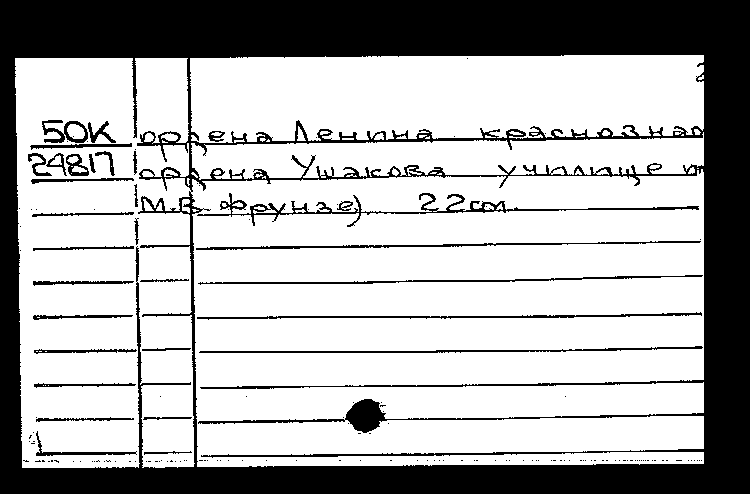 50К ордена Ленина краснозна
24817 ордена Ушакова училище
М.В. Фрунзе) 22см.